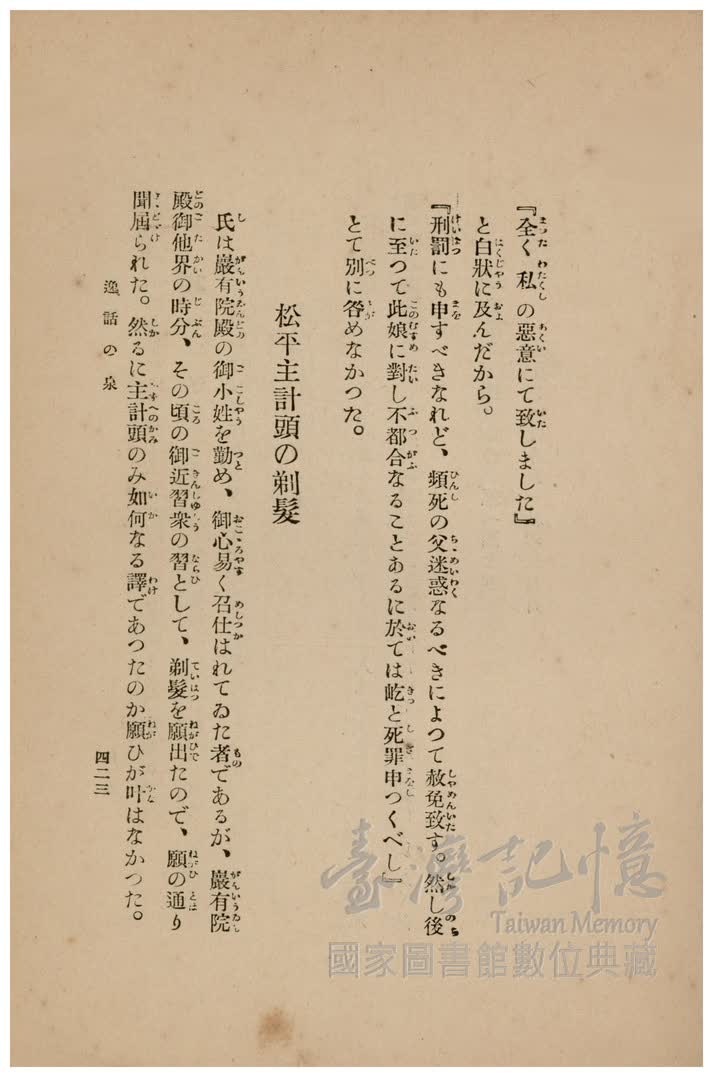 『全く私の惡意にて致しました』
と白狀に及んだから。
『刑罰にも申すべきなれど、頻死の父迷惑なるべきによつて赦免致す。然し後
に至つて此娘に對し不都合なることあるに於ては屹と死罪申つくべし』
とて別に咎めなかつた。
松平主計頭の剃髮
氏は嚴有院殿の御小姓を勤め、御心易く召仕はれてゐた者であるが、嚴有院
殿御他界の時分、その頃の御近習衆の習として、剃髮を願出たので、願の通り
聞屆られた。然るに主計頭のみ如何なる譯であつたのか願ひが叶はなかつた。
逸話の泉
四二三
臺灣記憶
Taiwan Memory
國家圖書館數位典藏